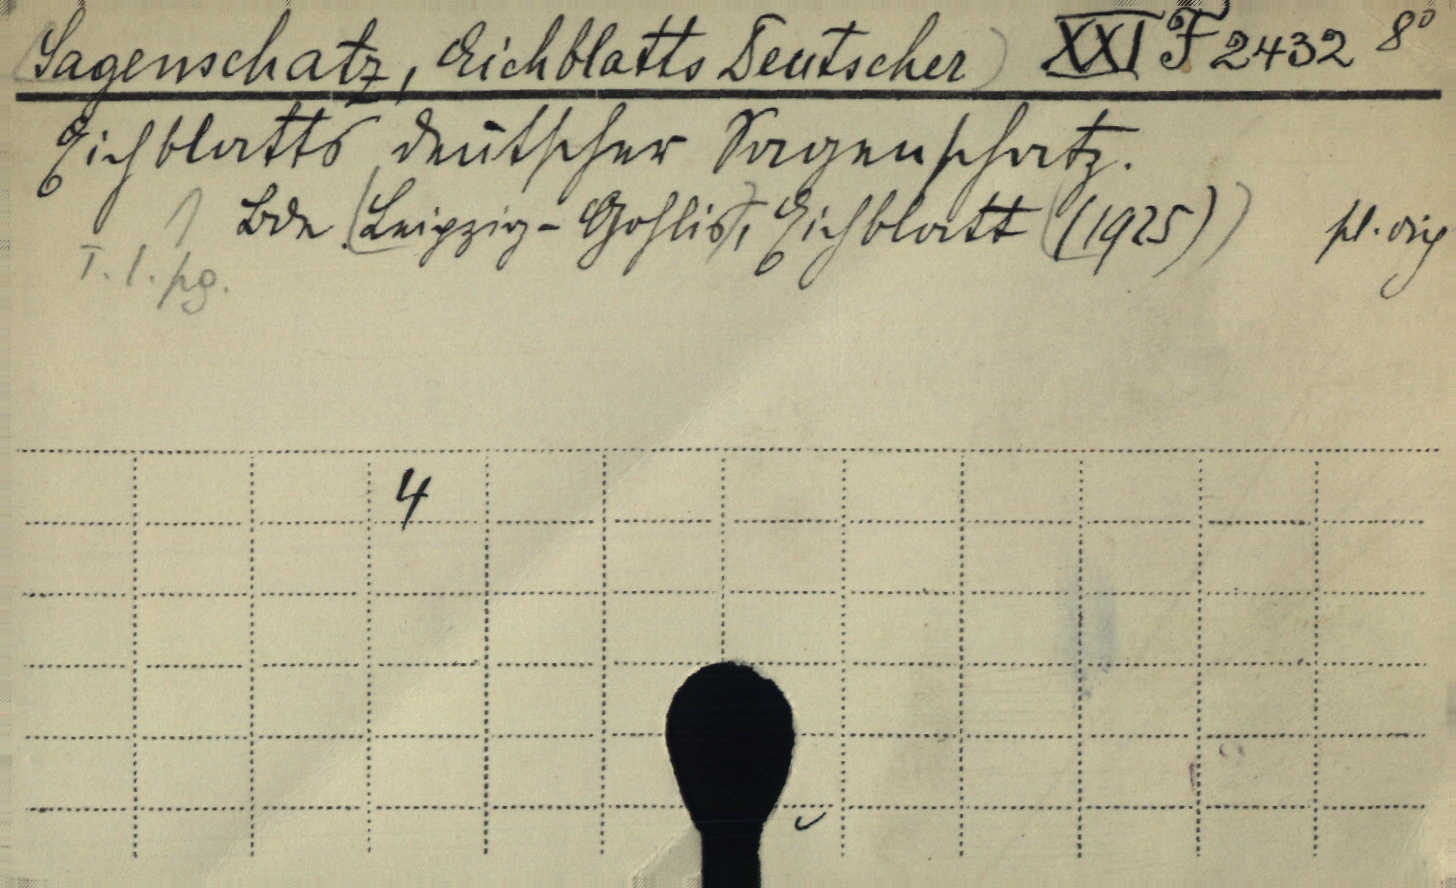 (Sagenschatz, Eichblatts Deutscher) XXI F 2432 8°
Eichblatts deutscher Sagenschatz.
Bde (Leipzig-Gohlis), Eichblatt ((1925))
T. 1. pg.
4